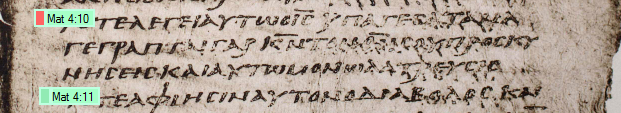 Mat 4:10 ΤΕ ΛΕΓΕΙ ΑΥΤΩ Ο ΙϹ ΥΠΑΓΕ ϹΑΤΑΝΑ
ΓΕΓΡΑΠΤΑΙ ΓΑΡ ΚΝ ΤΟΝ ΘΝ ϹΟΥ ΠΡΟϹΚΥ
ΝΗϹΕΙϹ ΚΑΙ ΑΥΤΩ ΜΟΝΩ ΛΑΤΡΕΥϹΕ
Mat 4:11 ΤΕ ΑΦΙΗϹΙΝ ΑΥΤΟΝ Ο ΔΙΑΒΟΛΟϹ ΚΑΙ